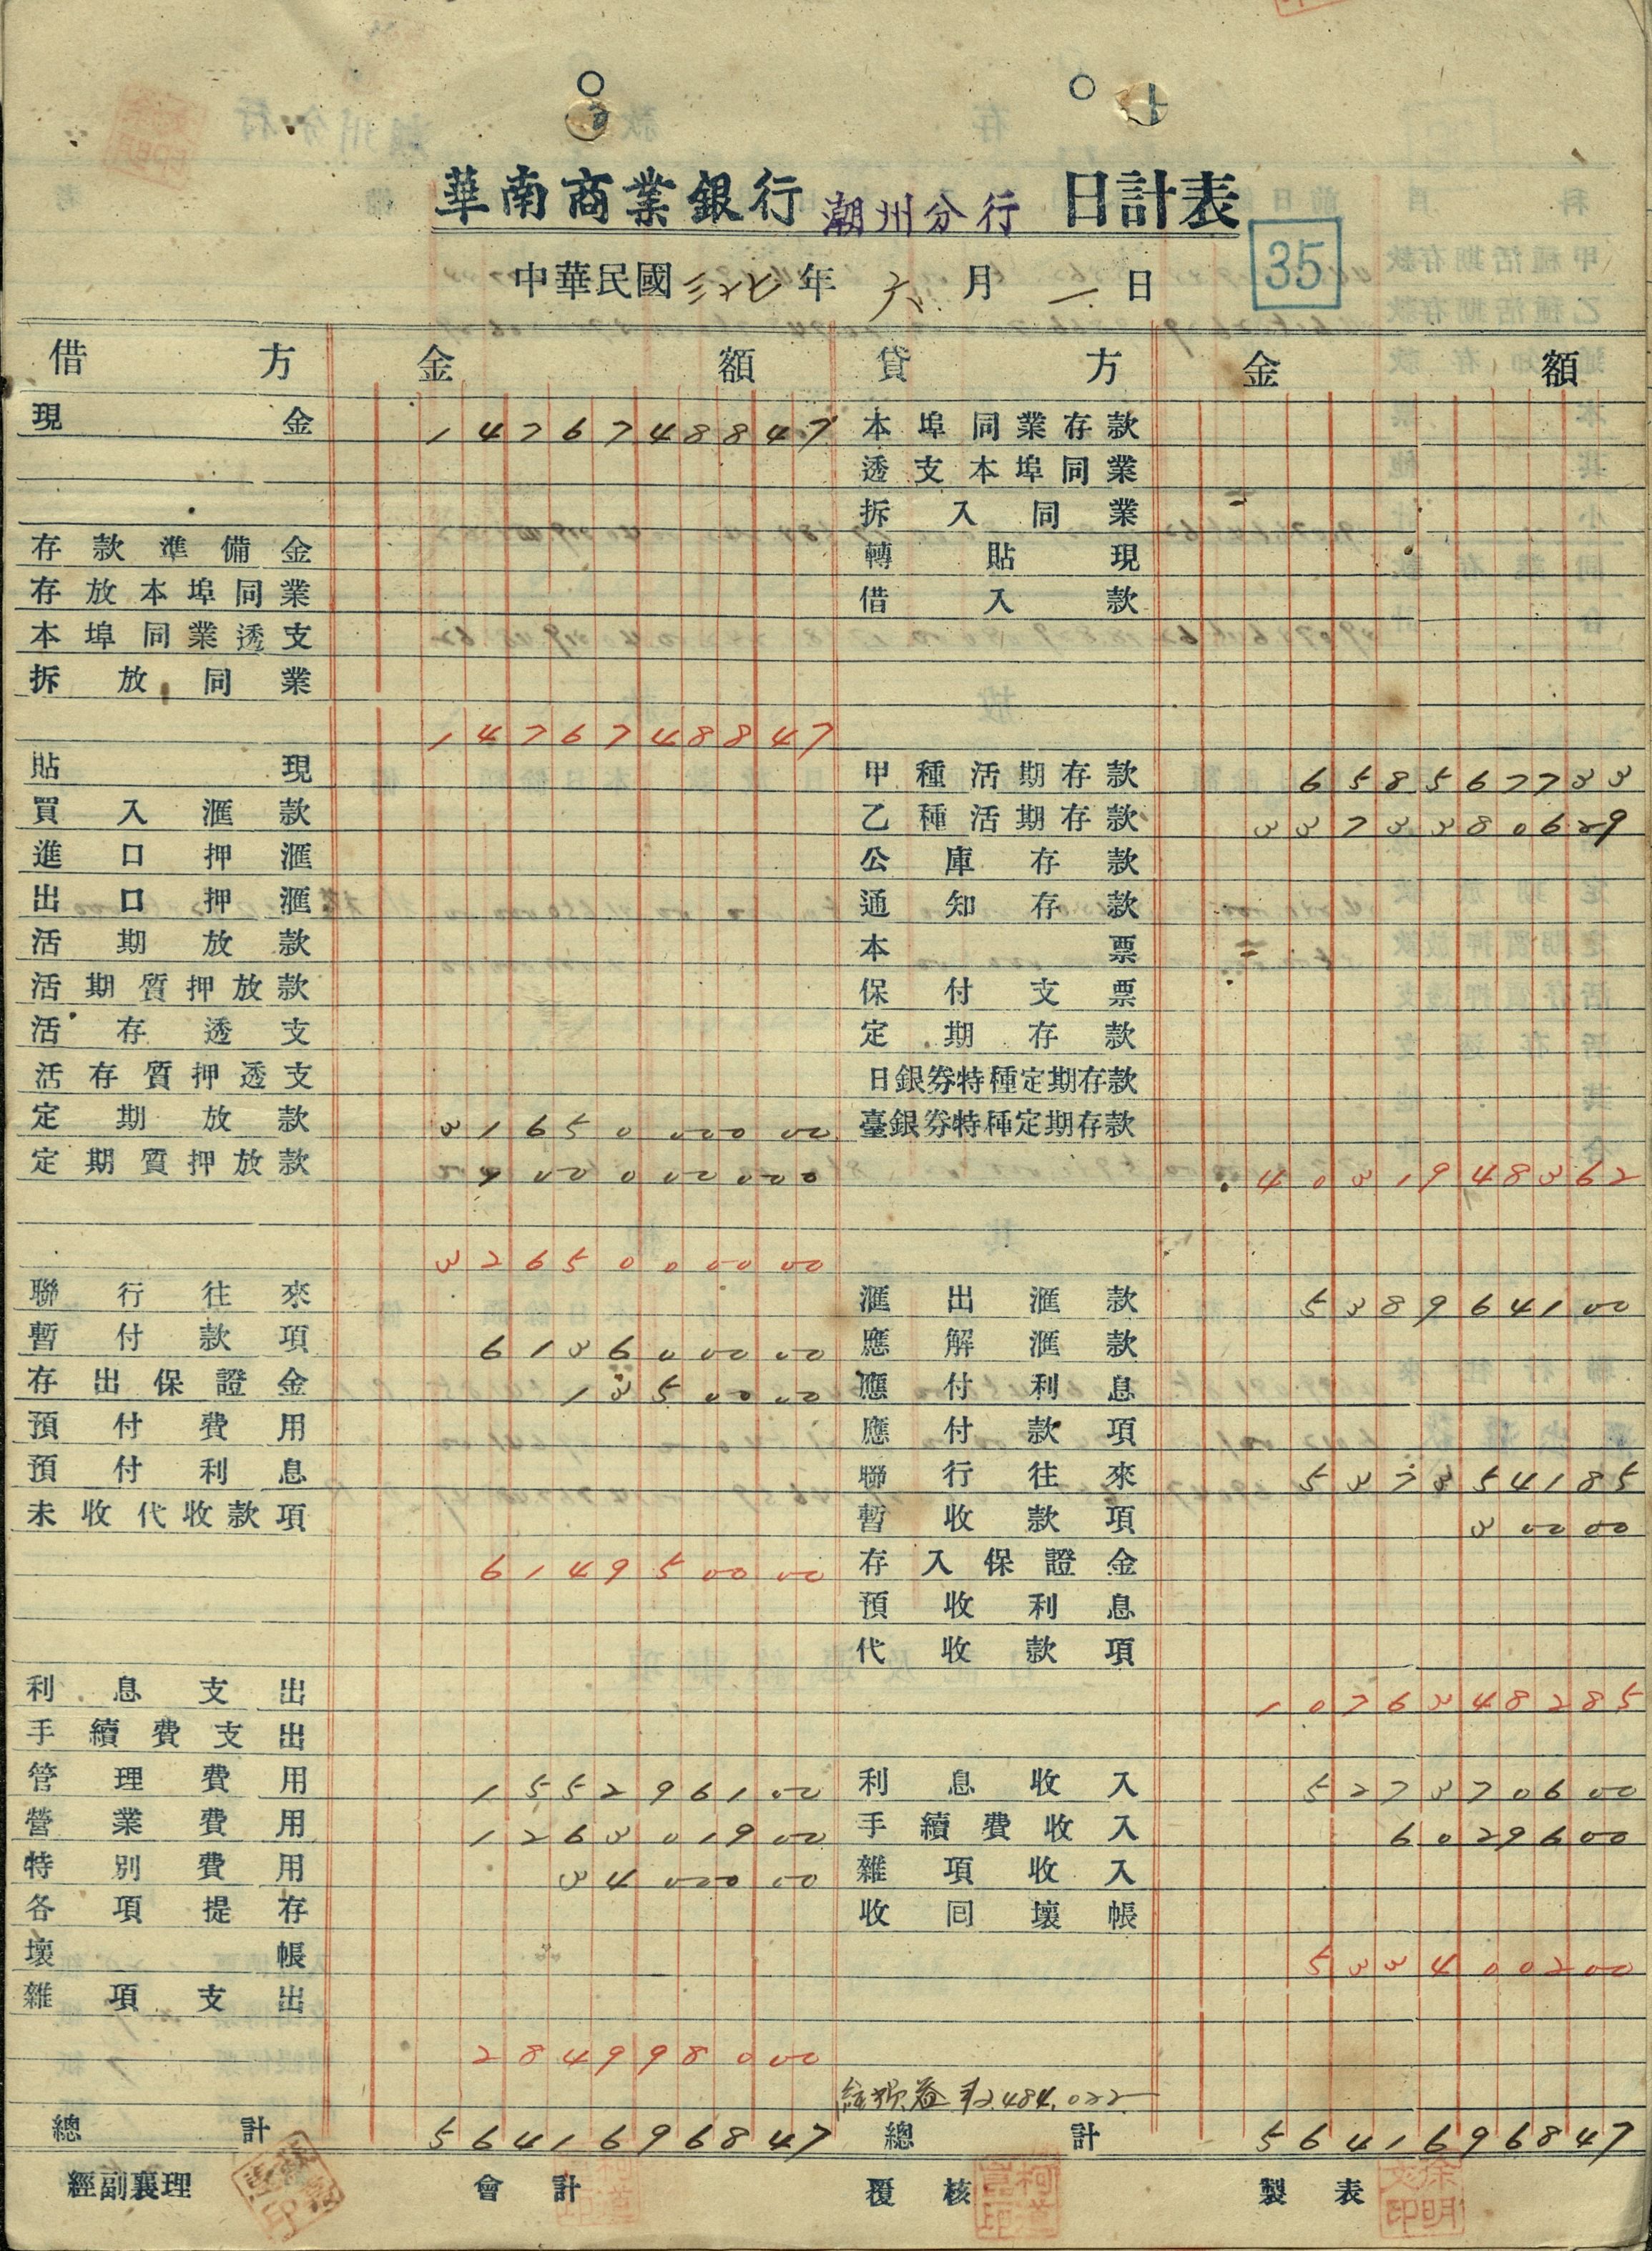 華南商業銀行 潮州分行 日計表
35
中華民國 三十七 年 六 月 一 日
借方 金額 貸方 金額
現金 1476748847 本埠同業存款
透支本埠同業
拆入同業
存款準備金 轉貼現
存放本埠同業 借入款
本埠同業透支
拆放同業
1476748847
貼現 甲種活期存款 658567733
買入滙款 乙種活期存款 3373380629
進口押滙 公庫存款
出口押滙 通知存款
活期放款 本票
活期質押放款 保付支票
活存透支 定期存款
活存質押透支 日銀券特種定期存款
定期放款 3165000000 臺銀券特種定期存款
定期質押放款 100000000 4031948362
3265000000
聯行往來 滙出滙款 538964100
暫付款項 613600000 應解滙款
存出保證金 1350000 應付利息
預付費用 應付款項
預付利息 聯行往來 537354185
未收代收款項 暫收款項 30000
614950000 存入保證金
預收利息
代收款項
利息支出 1076348285
手續費支出
管理費用 155296100 利息收入 527370600
營業費用 126301900 手續費收入 6029600
特別費用 3400000 雜項收入
各項提存 收囘壞帳
壞帳 533400200
雜項支出
284998000
純損益 $2,484,022-
總計 5641696847 總計 5641696847
經副襄理 會計 覆核 製表